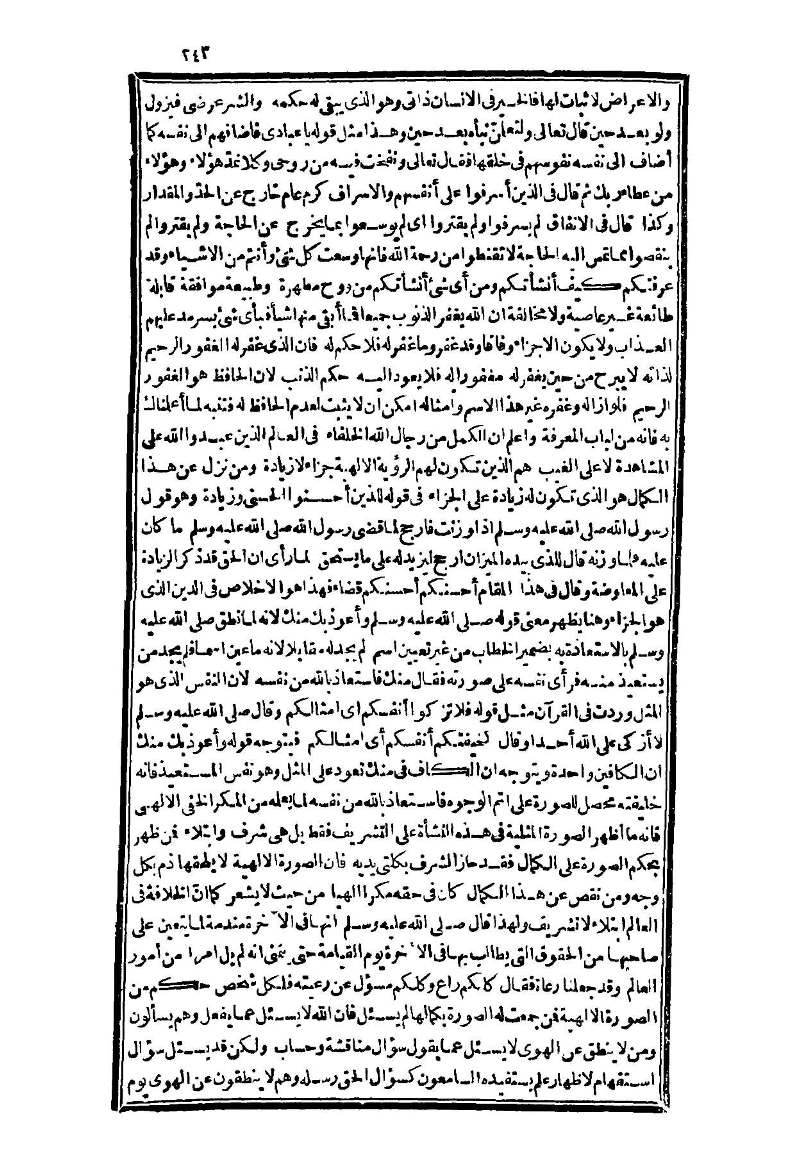 ٢٤٣
والاعراض لا ثبات لها فالخير في الانسان ذاتي وهو الذي يبقى له حكمه والشر عرضي فيزول
ولو بعد حين قال تعالى ولتعلمن نبأه بعد حين وهذا مثل قوله يا عبادي فاضافهم الى نفسه كما
أضاف الى نفسه نفوسهم في خلقها فقال تعالى ونفخت فيه من روحي وكلا نمد هؤلاء وهؤلاء
من عطاء ربك ثم قال في الذين أسرفوا على أنفسهم والاسراف كرم عام خارج عن الحد والمقدار
وكذا قال في الانفاق لم يسرفوا ولم يقتروا اي لم يوسعوا بما يخرج عن الحاجة ولم يقتروا لم
ينقصوا مما تمس اليه الحاجة لا تقنطوا من رحمة الله فانها وسعت كل شئ وأنتم من الاشياء وقد
عرفتكم كيف أنشأتكم ومن أي شئ أنشأتكم من روح مطهرة وطبيعة موافقة قابلة
طائعة غير عاصية ولا مخالفة ان الله يغفر الذنوب جميعا فما أبقى منها شيأ فبأي شئ يسرمد عليهم
العذاب ولا يكون الاجزاء وفاقا وقد غفر وما غفر له فلا حكم له فان الذي غفر له الغفور الرحيم
لذاته لا يبرح من حين يغفر له مغفورا له فلا يعود اليه حكم الذنب لان الحافظ هو الغفور
الرحيم فلو ازاله وغفره غير هذا الاسم وامثاله امكن ان لا يثبت لعدم الحافظ له فتنبه لما أعلمناك
به فانه من لباب المعرفة واعلم ان الكمل من رجال الله الخلفاء في العالم الذين عبدوا الله على
المشاهدة لا على الغيب هم الذين تكون لهم الرؤية الالهية جزاء لا زيادة ومن نزل عن هذا
الكمال هو الذي تكون له زيادة على الجزاء في قوله للذين أحسنوا الحسنى وزيادة وهو قول
رسول الله صلى الله عليه وسلم اذا وزنت فارجح لما قضى رسول الله صلى الله عليه وسلم ما كان
عليه فلما وزنه قال للذي بيده الميزان ارجح ليزيد له على ما يستحق لما رأى ان الحق قد ذكر الزيادة
على المعاوضة وقال في هذا المقام أحسنكم أحسنكم قضاء فهذا هو الاخلاص في الدين الذي
هو الجزاء وهنا يظهر معنى قوله صلى الله عليه وسلم وأعوذ بك منك لانه لما نطق صلى الله عليه
وسلم بالاستعاذة به بضمير الخطاب من غير تعيين اسم لم يجد له مقابلا لانه ما عين اسما فلم يجد من
يستعيذ منه فرأى نفسه على صورته فقال منك فاستعاذ بالله من نفسه لان النفس الذي هو
المثل وردت في القرآن مثل قوله فلا تزكوا أنفسكم اي امثالكم وقال صلى الله عليه وسلم
لا أزكى على الله أحدا وقال كخيفتكم أنفسكم أي امثالكم فيتوجه قوله وأعوذ بك منك
ان الكافين واحدة ويتوجه ان الكاف في منك تعود على المثل وهو نفس المستعيذ فانه
خليفته محصل للصورة على اتم الوجوه فاستعاذ بالله من نفسه لما يعلمه من المكر الخفي الالهي
فانه ما أظهر الصورة المثلية في هذه النشأة على التشريف فقط بل هي شرف وابتلاء فمن ظهر
بحكم الصورة على الكمال فقد حاز الشرف بكلتي يديه فان الصورة الالهية لا يلحقها ذم بكل
وجه ومن نقص عن هذا الكمال كان في حقه مكرا الهيا من حيث لا يشعر كما ان الخلافة في
العالم ابتلاء لا تشريف ولهذا قال صلى الله عليه وسلم انها في الآخرة مندمة لما يتعين على
صاحبها من الحقوق التي يطالب بها في الآخرة يوم القيامة حتى يتمنى انه لم يل امرا من أمور
العالم وقد جعلنا رعاة فقال كلكم راع وكلكم مسؤل عن رعيته فلكل شخص حكم من
الصورة الالهية فمن جمعت له الصورة بكمالها لم يسئل فان الله لا يسئل عما يفعل وهم يسألون
ومن لا ينطق عن الهوى لا يسئل عما يقول سؤال مناقشة وحساب ولكن قد يسئل سؤال
استفهام لاظهار علم يستفيده السامعون كسؤال الحق رسله وهم لا ينطقون عن الهوى يوم